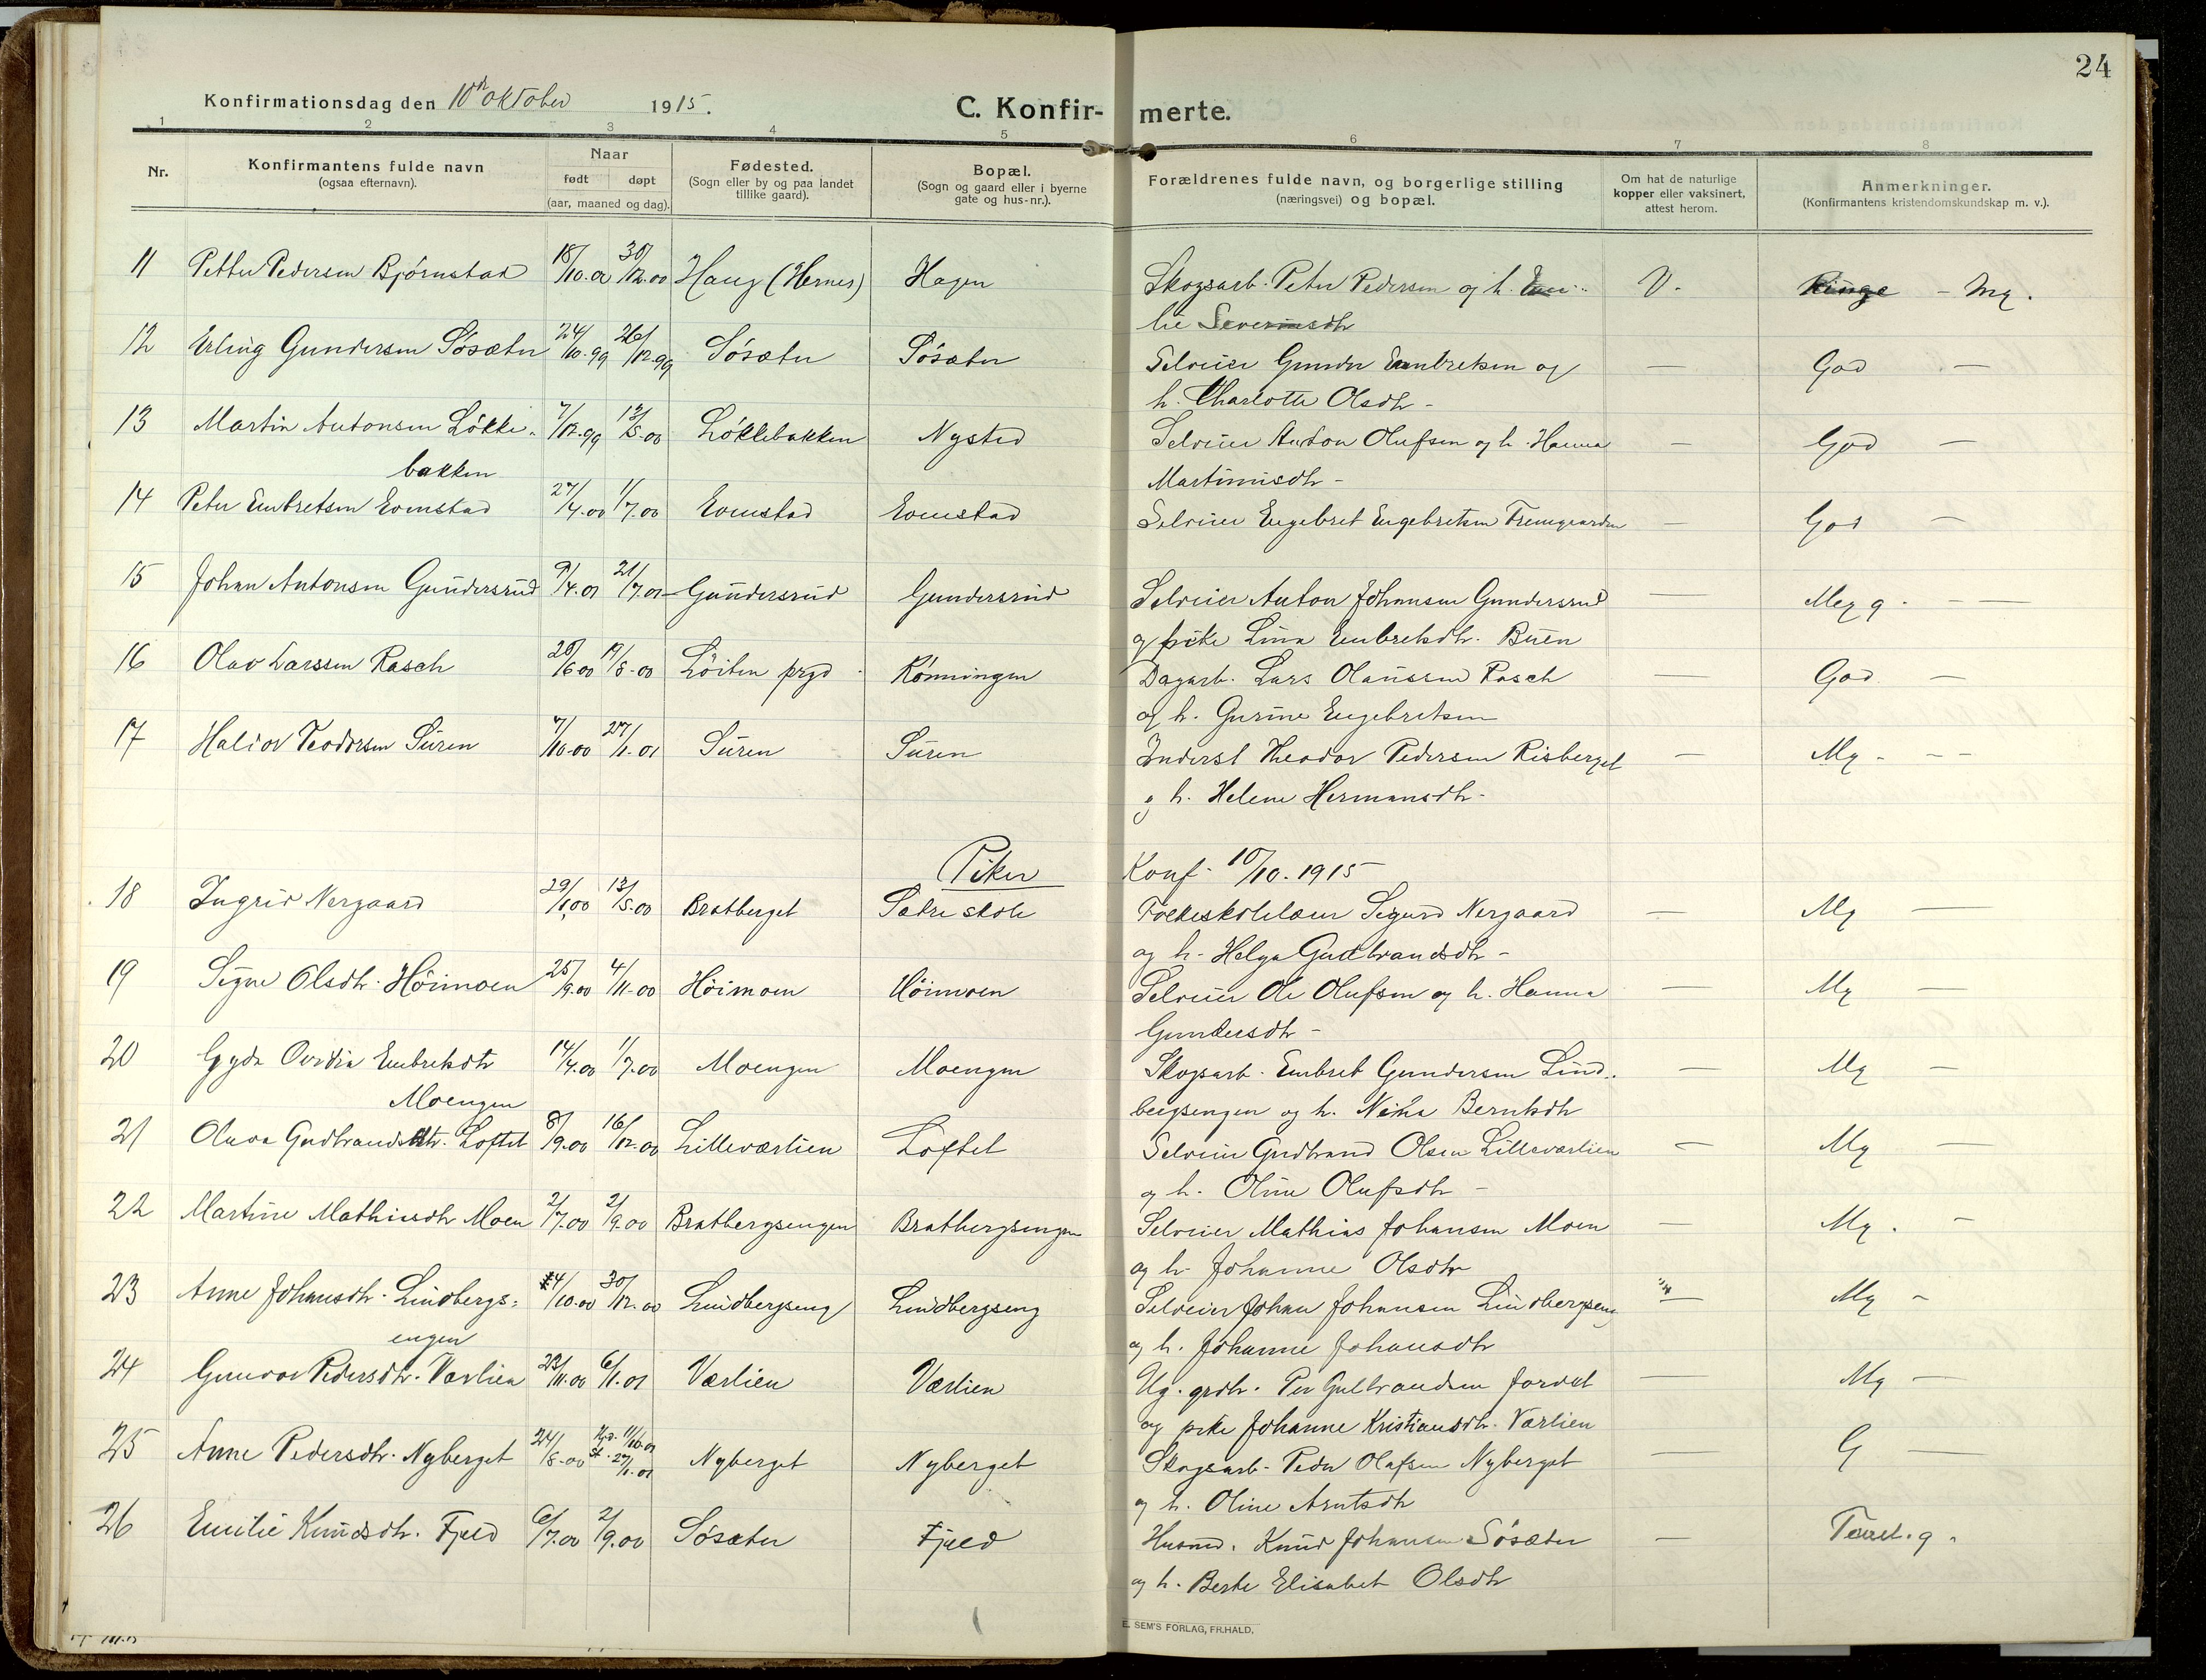 24
Konfirmationsdag den 10de oktober 1915.
C. Konfirmerte.
1 2 3 4 5 6 7 8
Nr.
Konfirmantens fulde navn
(ogsaa efternavn).
Naar
født døpt
(aar, maaned og dag).
Fødested.
(Sogn eller by og paa landet
tillike gaard).
Bopæl.
(Sogn og gaard eller i byerne
gate og hus-nr.).
Forældrenes fulde navn, og borgerlige stilling
(næringsvei) og bopæl.
Om hat de naturlige
kopper eller vaksinert,
attest herom.
Anmerkninger.
(Konfirmantens kristendomskundskap m. v.).
11 Petter Pedersen Bjørnstad 18/10.00 30/12.00 Haug (Hernes) Hagen Skogsarb. Peter Pedersen og h. V. Mg.
lie Severinsdtr
12 Erling Gundersen Søsæter 24/10.99 26/12.99 Søsæter Søsæter Selveier Gunder Embretsen og — God —
h. Charlotte Olsdtr -
13 Martin Antonsen Løkke- 7/12.99 13/5.00 Løkkebakken Nysted Selveier Anton Olufsen og h. Hanna — God —
bakken Martinusdtr -
14 Peter Embretsen Evenstad 27/4.00 1/7.00 Evenstad Evenstad Selveier Engebret Engebretsen Fremgaarden — God —
15 Johan Antonsen Gundersrud 9/4.01 21/7.01 Gundersrud Gundersrud Selveier Anton Johansen Gundersrud — Meg g. — —
og pike Lina Embretsdtr. Buen
16 Olav Larssen Rasch 28/6.00 19/8.00 Løiten prgd Rønningen Dagarb. Lars Olaussen Rasch — God —
og h. Gurine Engebretsen
17 Halvor Teodorsen Suren 7/10.00 27/1.01 Suren Suren Inderst Theodor Pedersen Risberget — Mg. — —
og h. Helene Hermansdtr -
Piker Konf. 10/10.1915
18 Ingrid Nergaard 29/1.00 13/5.00 Bratberget Sætre skole Folkeskolelærer Sigurd Nergaard — Mg —
og h. Helga Gudbrandsdtr -
19 Signe Olsdtr. Høimoen 25/9.00 4/11.00 Høimoen Høimoen Selveier Ole Olufsen og h. Hanna — Mg —
Gundersdtr -
20 Gyda Ovidia Embretsdtr 14/4.00 1/7.00 Moengen Moengen Skogsarb. Embret Gundersen Lind- — Mg —
Moengen bergsengen og h. Nikka Berntsdtr
21 Olava Gudbrandsdtr. Loftet 8/9.00 16/12.00 Lilleværlien Loftet Selveier Gudbrand Olsen Lilleværlien — Mg —
og h. Oline Olufsdtr -
22 Martine Mathiasdtr Moen 2/7.00 2/9.00 Bratbergsengen Bratbergsengen Selveier Mathias Johansen Moen — Mg. —
og h. Johanne Olsdtr
23 Anne Johansdtr. Lindbergs= 24/10.00 30/12.00 Lindbergseng Lindbergseng Selveier Johan Johansen Lindbergseng — Mg —
engen og h. Johanne Johansdtr
24 Gunvor Pedersdtr. Værlien 23/11.00 6/1.01 Værlien Værlien Ug. grdbr. Per Gulbrandsen Jordet — Mg —
og pike Johanne Kristiansdtr. Værlien
25 Anne Pedersdtr. Nyberget 24/8.00 Hjd. 11/10.01 St. 27/1.01 Nyberget Nyberget Skogsarb. Peder Olafsen Nyberget — G —
og h. Oline Arntsdtr
26 Emilie Knudsdtr. Fjeld 6/7.00 2/9.00 Søsæter Fjeld Husmd. Knud Johansen Søsæter — Temmel. g.
og h. Berte Elisabet Olsdtr
E. SEM'S FORLAG, FR.HALD.